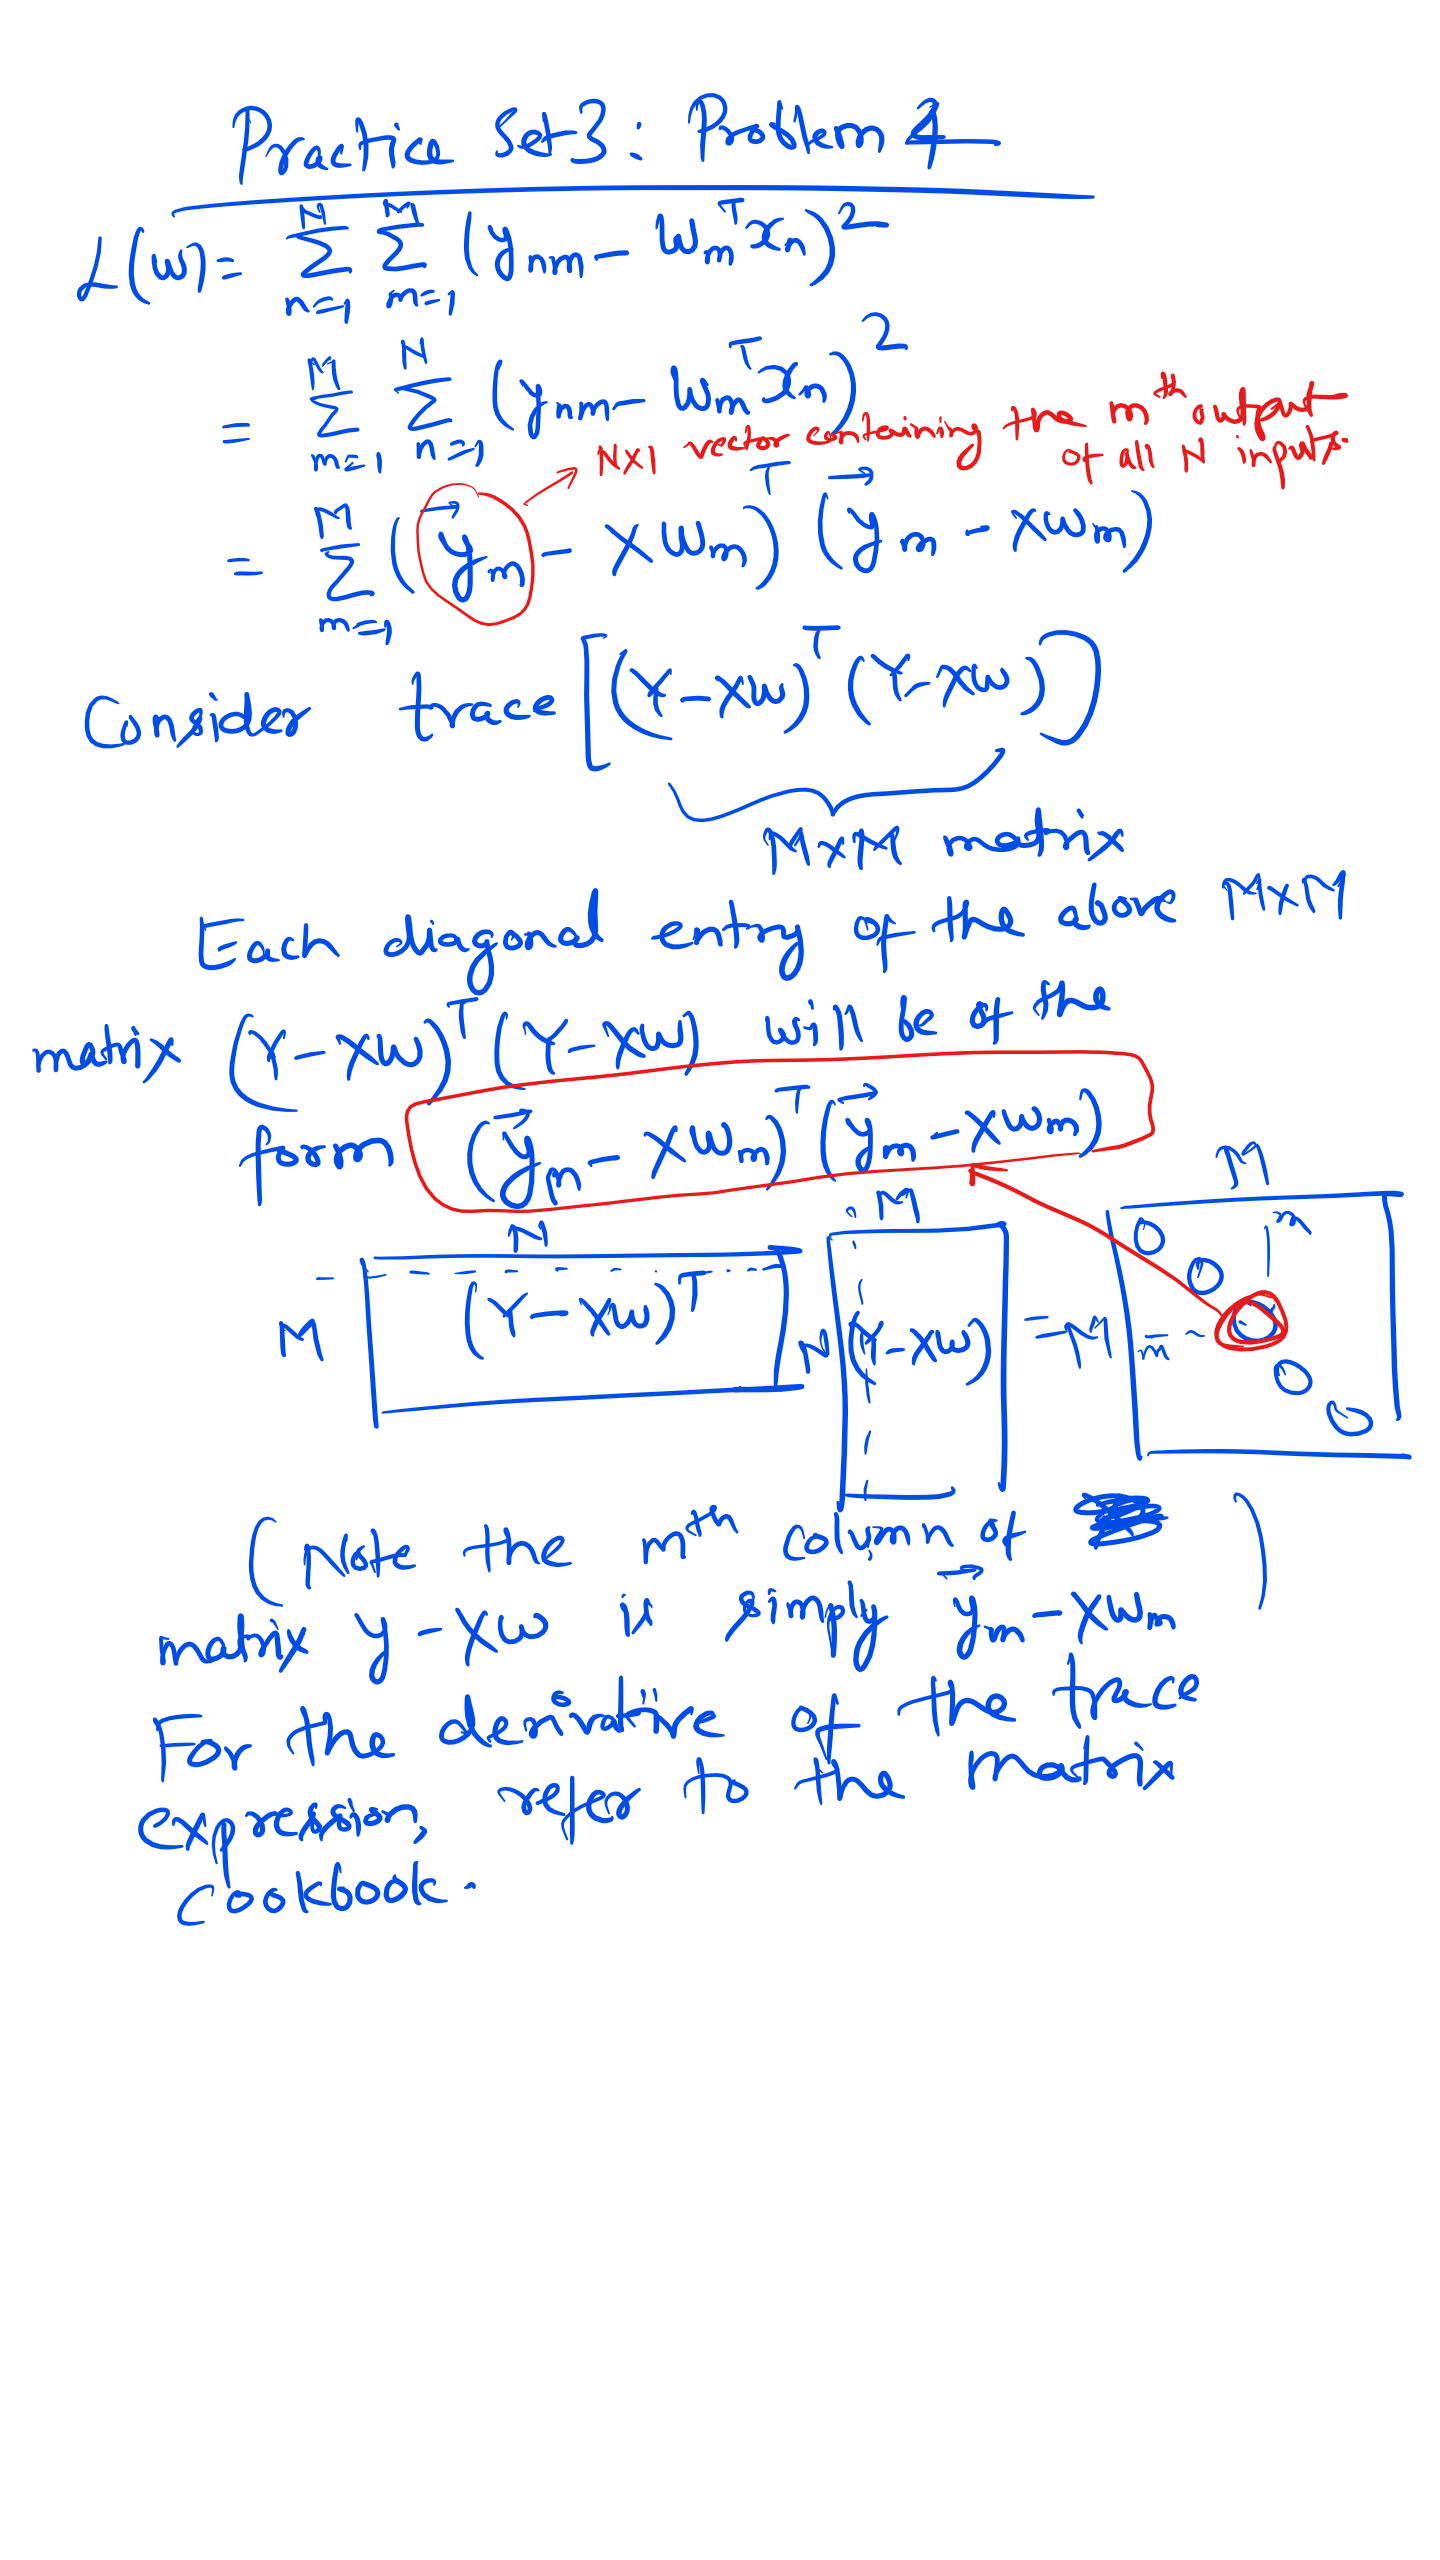 Practice Set 3: Problem 4
L(w) = Σ_{n=1}^{N} Σ_{m=1}^{M} (y_{nm} - w_m^T x_n)^2
= Σ_{m=1}^{M} Σ_{n=1}^{N} (y_{nm} - w_m^T x_n)^2
N×1 vector containing the m^th output
of all N inputs.
= Σ_{m=1}^{M} (\vec{y}_m - X w_m)^T (\vec{y}_m - X w_m)
Consider trace [(Y - XW)^T (Y - XW)]
M×M matrix
Each diagonal entry of the above M×M
matrix (Y - XW)^T (Y - XW) will be of the
form (\vec{y}_m - X w_m)^T (\vec{y}_m - X w_m)
N M M
M (Y - XW)^T N (Y - XW) = M m m
(Note the m^th column of
matrix Y - XW is simply \vec{y}_m - X w_m)
For the derivative of the trace
expression, refer to the matrix
cookbook.